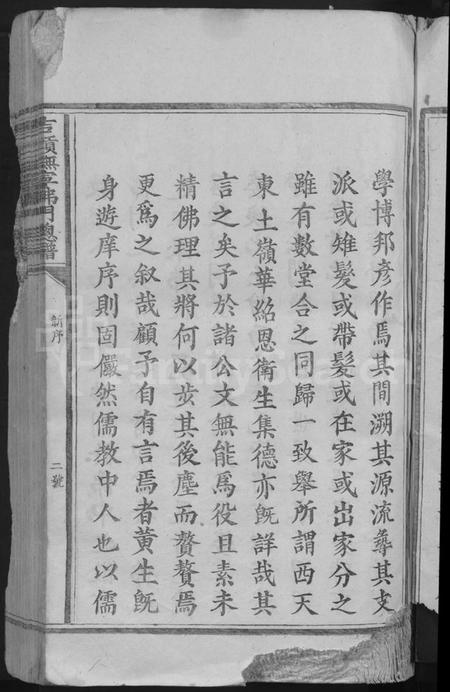 學博邦彥作焉其間溯其源流彞其支
派或雉髮或帶髮或在家或出家分之
雖有數堂合之同歸一致舉所謂西天
東土嶺華紹恩衛生集德亦旣詳哉其
言之矣予於諸公文無能爲役且素未
精佛理其將何以步其後塵而贅贅焉
更爲之叙哉顧予自有言焉者黃生旣
身遊庠序則固儼然儒教中人也以儒
新序
二號